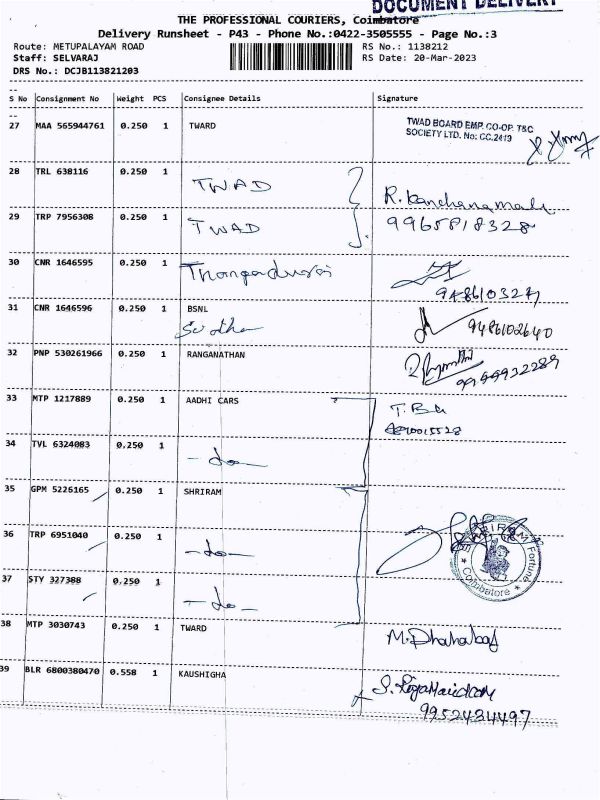 DOCUMENT DELIVERY
THE PROFESSIONAL COURIERS, Coimbatore
Delivery Runsheet - P43 - Phone No.:0422-3505555 - Page No.:3
Route: METUPALAYAM ROAD RS No.: 1138212
Staff: SELVARAJ RS Date: 20-Mar-2023
DRS No.: DCJB113821203
S No Consignment No Weight PCS Consignee Details Signature
27 MAA 565944761 0.250 1 TWARD
TWAD BOARD EMP. CO-OP. T&C
SOCIETY LTD. No: CC.2419
28 TRL 638116 0.250 1 TWAD
R. Kanchanamala
29 TRP 7956308 0.250 1 TWAD
9965818328
30 CNR 1646595 0.250 1
31 CNR 1646596 0.250 1 BSNL
Sudha 9486102640
32 PNP 530261966 0.250 1 RANGANATHAN
33 MTP 1217889 0.250 1 AADHI CARS
34 TVL 6324083 0.250 1 -do-
35 GPM 5226165 0.250 1 SHRIRAM
36 TRP 6951040 0.250 1 -do-
Fortune
Coimbatore
37 STY 327388 0.250 1 -do-
38 MTP 3030743 0.250 1 TWARD
39 BLR 6800380470 0.558 1 KAUSHIGHA
9952434497